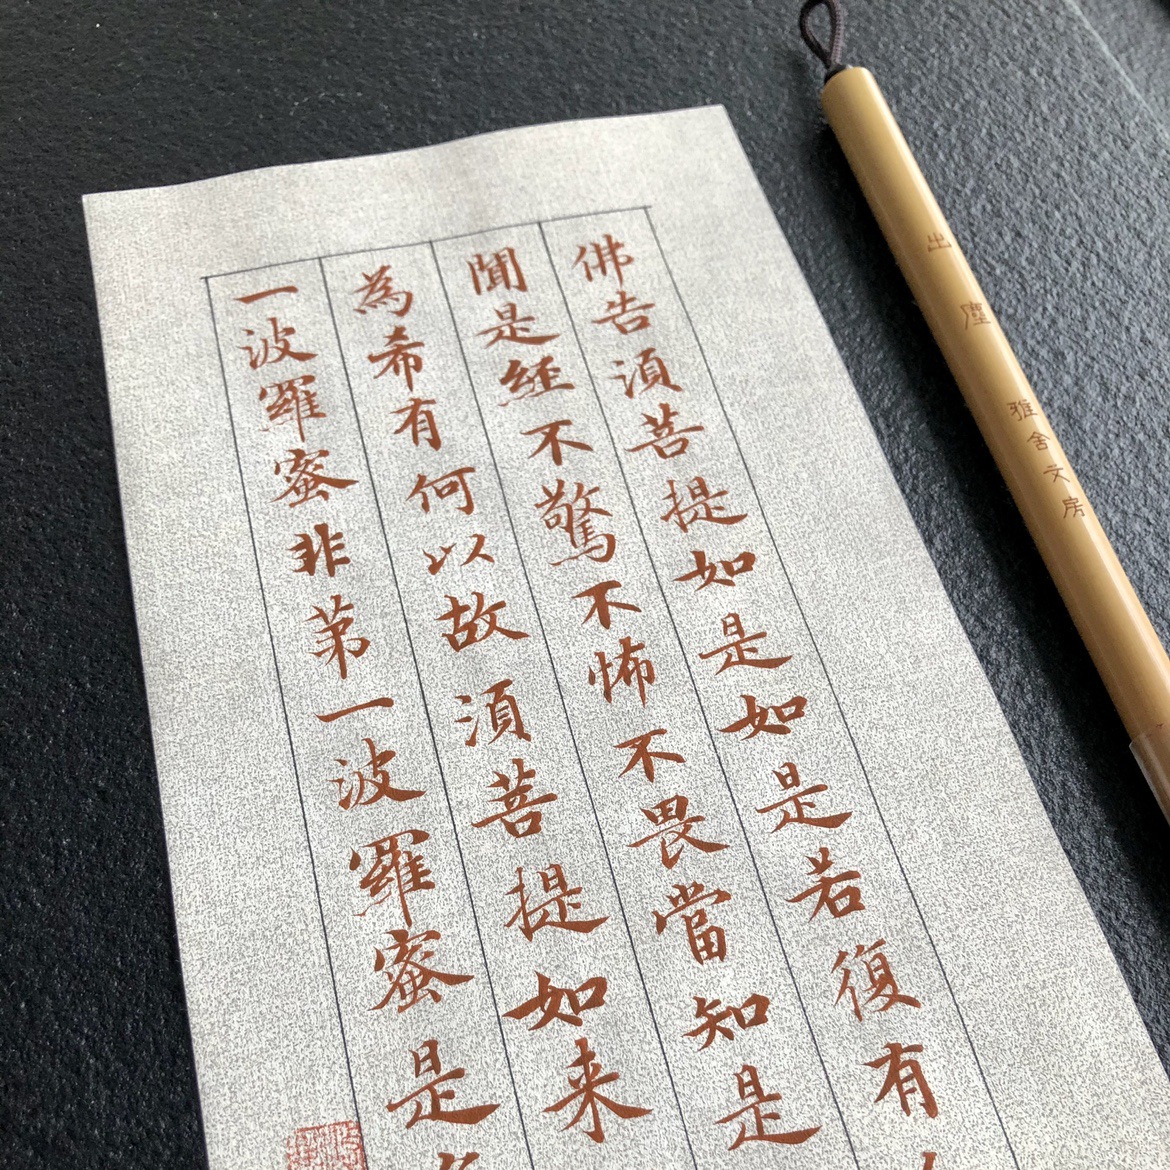 佛告湏菩提如是如是若復有
聞是經不驚不怖不畏當知是
為希有何以故湏菩提如来
一波羅蜜非第一波羅蜜是
出塵
雅舍文房